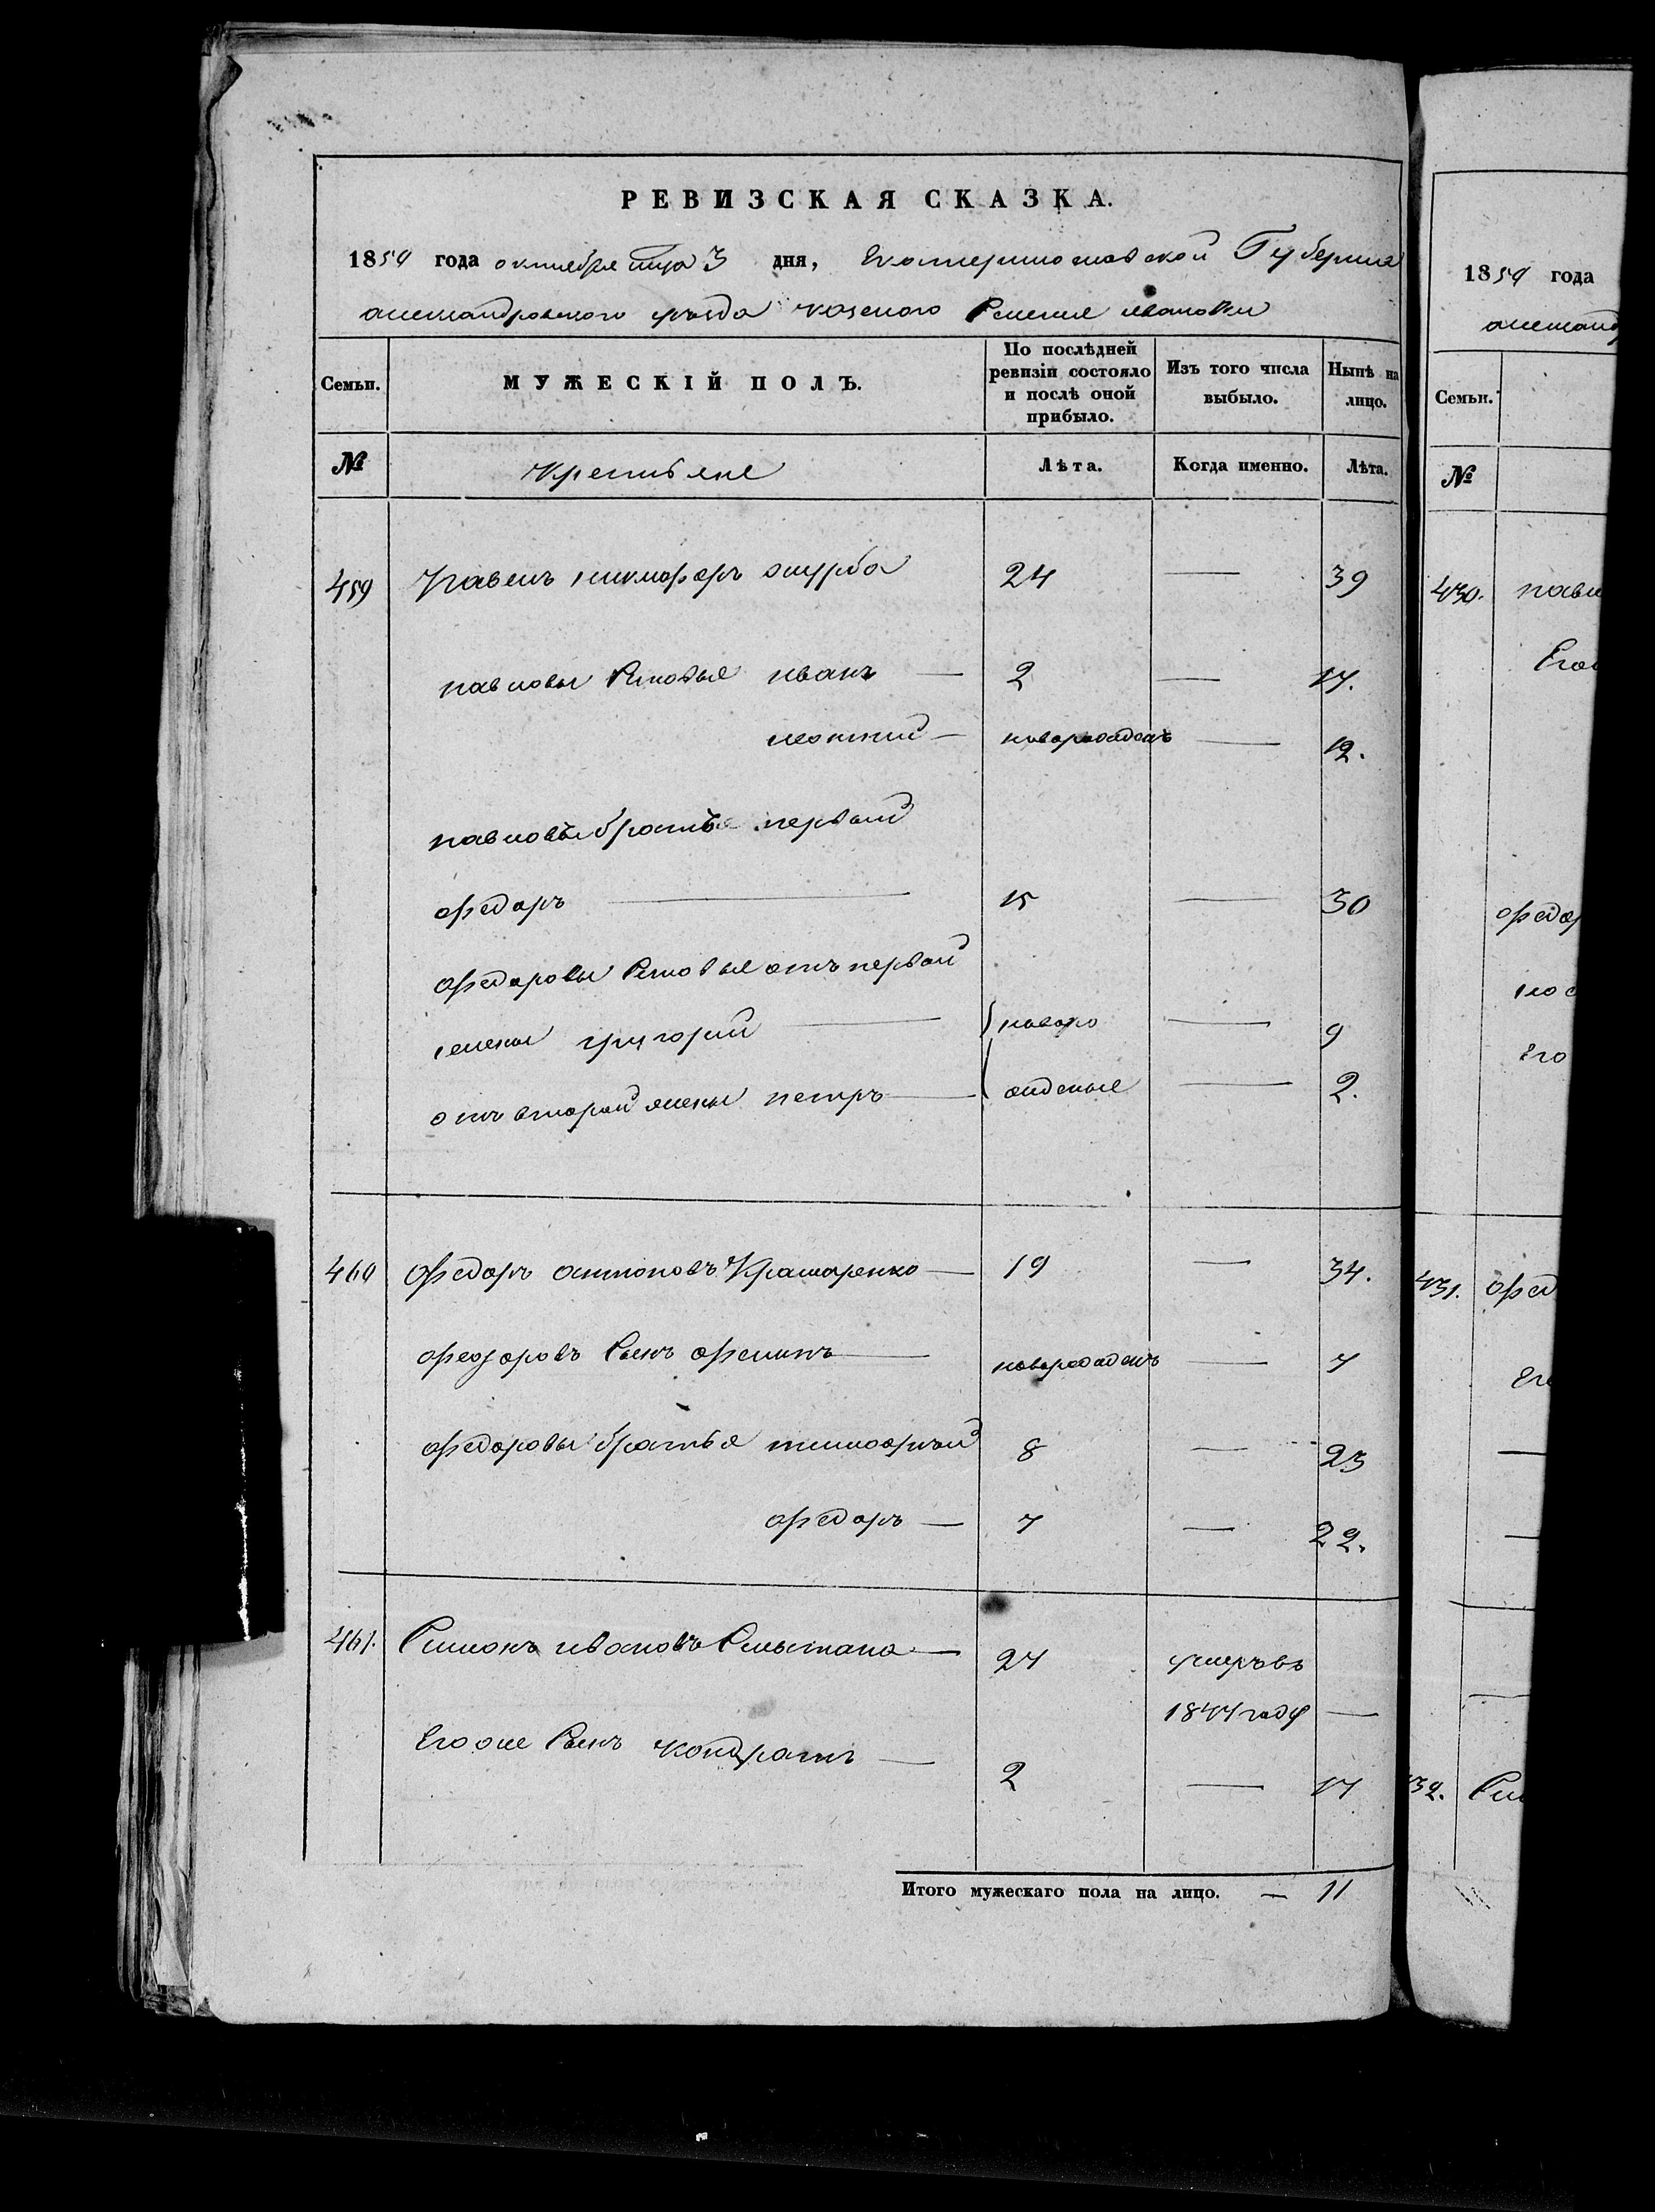 РЕВИЗСКАЯ СКАЗКА.
1859 года октября мца 3 дня, Екатеринославской Губернiи
александровского уезда казеного Селения ивановки
Семьи. МУЖЕСКІЙ ПОЛЪ. По послѣдней ревизіи состояло и послѣ оной прибыло. Изъ того числа выбыло. Нынѣ на лицо.
№ Крестьяне Лѣта. Когда именно. Лѣта.
459 Павелъ никифоръ 24 — 39
павловы Сыновья иванъ — 2 — 17.
леонтий — новорожденъ — 12.
павловы братья первый
федоръ — 15 — 30
федоровы Сыновья отъ первой
жены григорий — новоро — 9
отъ второй жены петръ — жденые — 2.
460 Федоръ антоновъ Крамаренко — 19 — 34.
феодоровъ Сынъ филипъ — новорожденъ — 7
федоровы братья тимофей 8 — 23
федоръ — 7 — 22.
461. Симонъ ивановъ — 27 умеръ въ
1847 году —
Егоже Сынъ кондратъ — 2 — 17
Итого мужескаго пола на лицо. — 11
1859 года
Семьи.
№
430.
431.